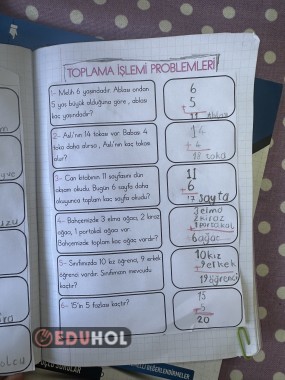 TOPLAMA İŞLEMİ PROBLEMLERİ
1- Melih 6 yaşındadır. Ablası ondan
5 yaş büyük olduğuna göre, ablası
kaç yaşındadır?
6
5
+
11 abla
2- Aslı'nın 14 tokası var. Babası 4
toka daha alırsa, Aslı'nın kaç tokası
olur?
14
+ 4
18 toka
3- Can kitabının 11 sayfasını dün
akşam okudu. Bugün 6 sayfa daha
okuyunca toplam kaç sayfa okudu?
11
+ 6
17 sayfa
4- Bahçemizde 3 elma ağacı, 2 kiraz
ağacı, 1 portakal ağacı var.
Bahçemizde toplam kaç ağaç vardır?
3 elma
2 kiraz
+ 1 portakal
6 ağaç
5- Sınıfımızda 10 kız öğrenci, 9 erkek
öğrenci vardır. Sınıfımızın mevcudu
kaçtır?
10 kız
+ 9 erkek
19 öğrenci
6- 15'in 5 fazlası kaçtır?
15
+ 5
20
EDUHOL
DEĞERLENDİRMELER